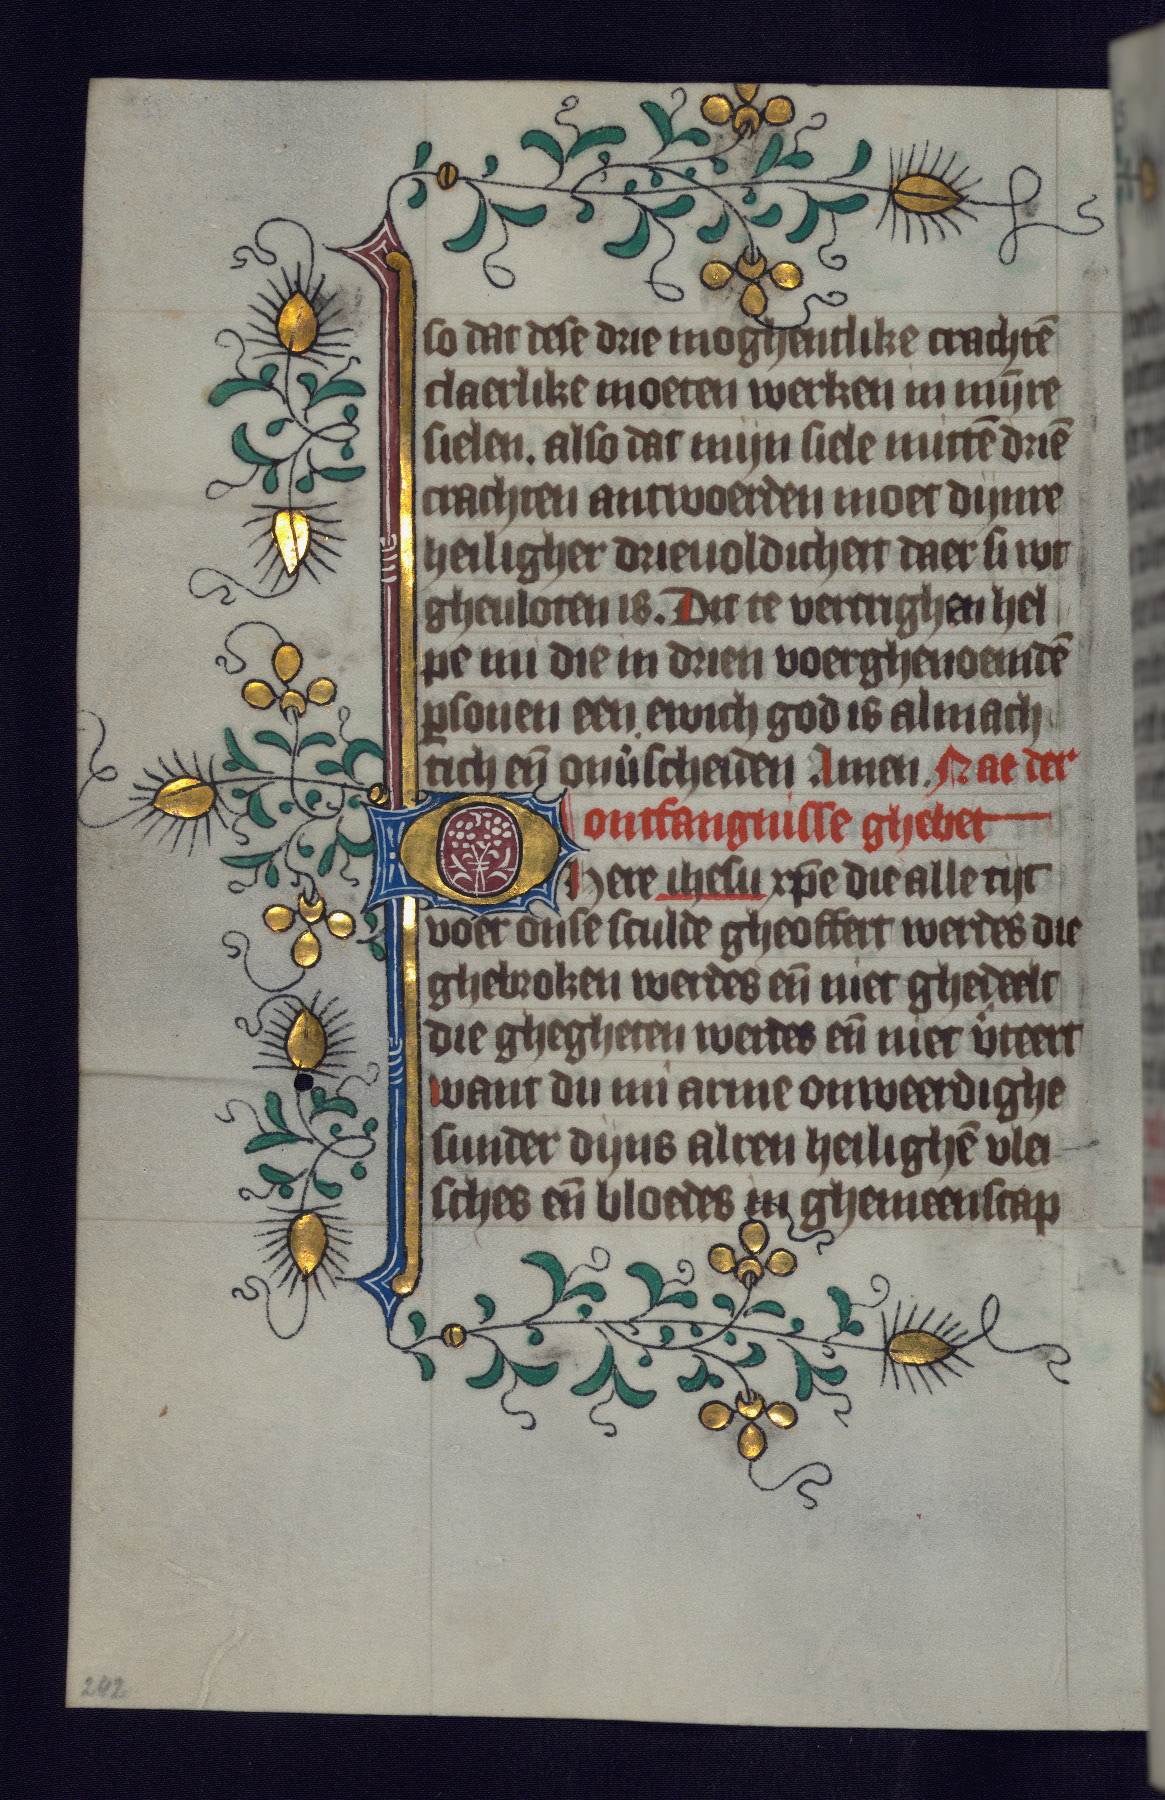 so dat dese drie moghentlike crachtē
claerlike moeten werken in mijre
sielen. also dat mijn siele mittē driē
crachten antwoerden moet dijnre
heiligher drieuoldicheit daer si wt
gheuloten is. Dit te vercrighen hel
pe mi die in drien voerghenoemdē
ꝑsonen een ewich god is almach
tich eñ onūscheiden Amen. Nae der
ontfangnisse ghebet
O Here ihesu xp̄e die alle tijt
voer onse sculde gheoffert wertes die
ghebroken wertes eñ niet ghedeelt
die ghegheten wertes eñ niet v̄teert
want du mi arme onweerdighe
sunder dijns alren heilighē vlei
sches eñ bloedes in ghemeenscap
242